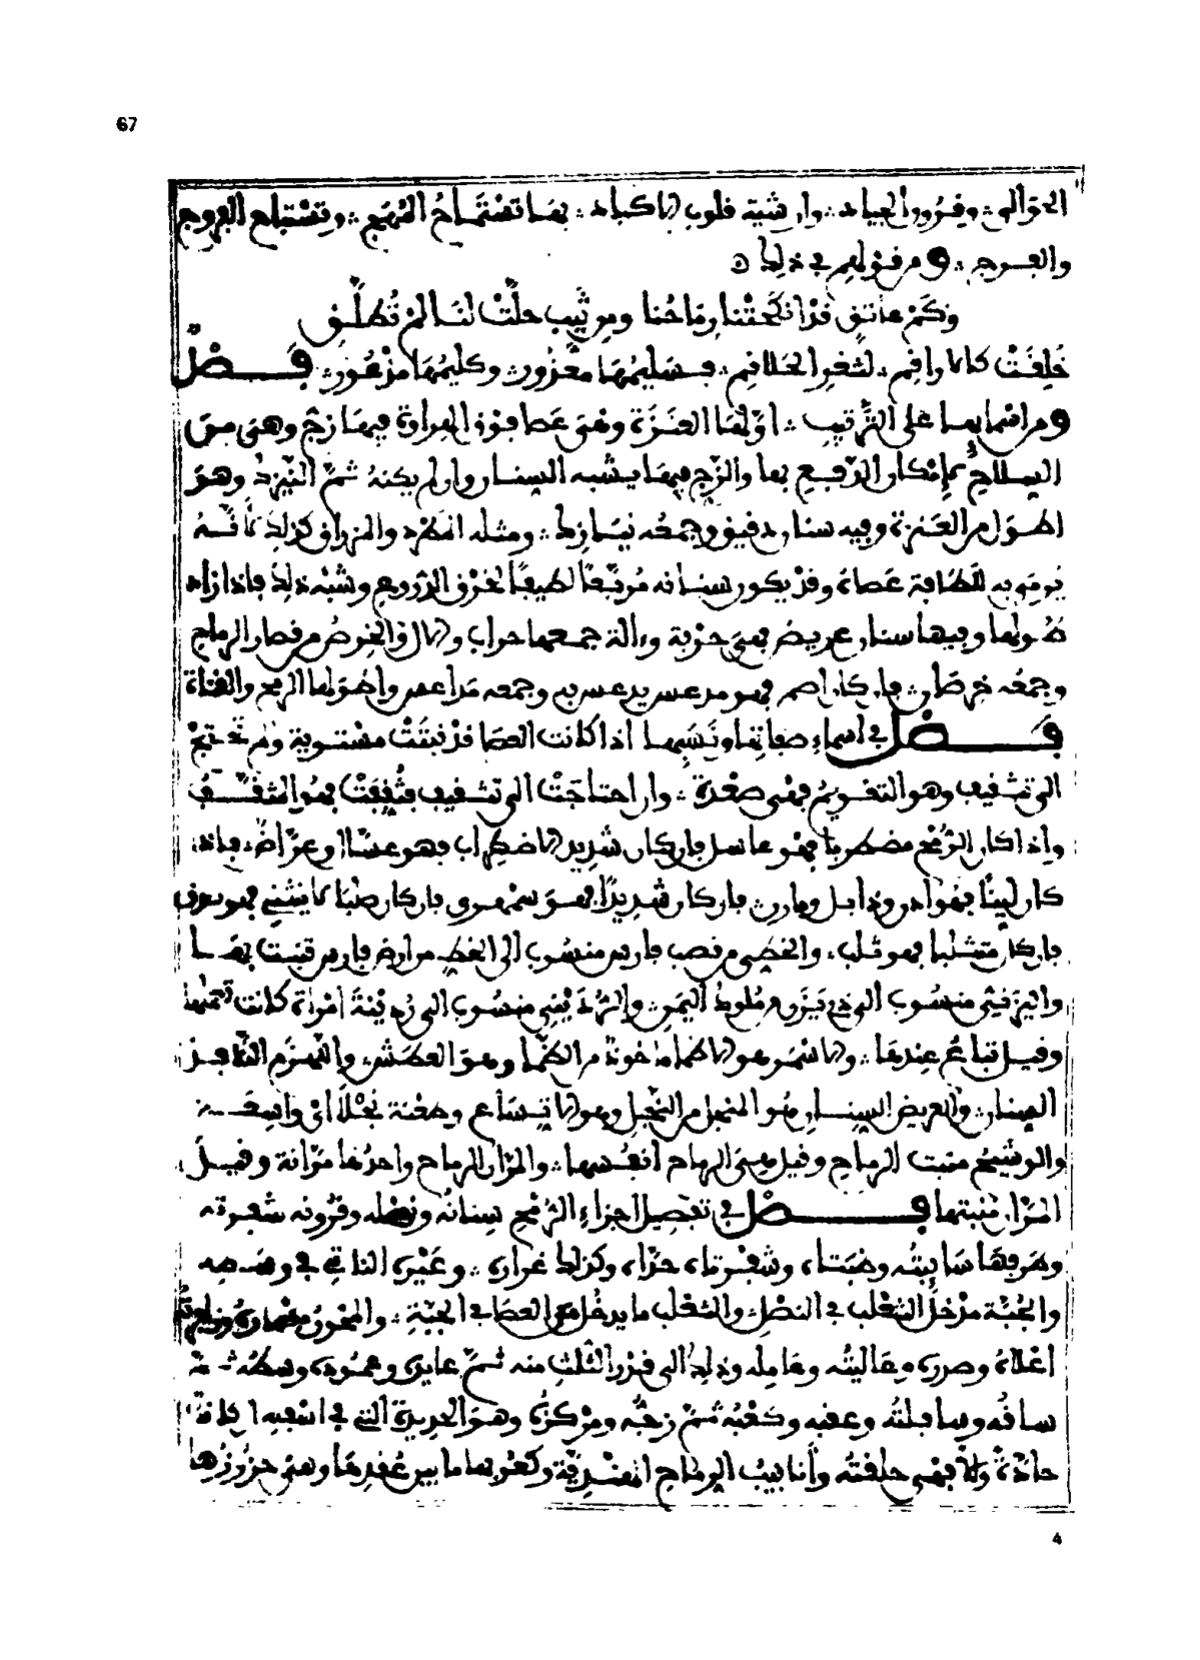 67
وفرود الجياد وان شيته قلوب الاكباد بها تستماح المهج وتستباح البروج
والفروج ومن قولهم في ذلك
وكم عاتق قد انكحتنا رماحنا ومن ثيب حلت لنا لم تطلق
خلقت كالاراقم لثغر الحلاقم فسليمها معزور وكليمها مذعور فصل
ومن اسمايها على الترتيب اولها العنزة وهي عصا فوق الهراوة فيها زج وهي من
السلاح بإمكان الدفع بها والزج فيها يشبه السنان وان لم يكنه ثم النيزك وهو
اطول من العنزة وفيه سنان دقيق وجمعه نيازك ومثله المطرد والمزراق كذلك لانه
يومى به للطافة عصاه وقد يكون سنانه مربعا لطيفا لخرق الدروع وشبه ذلك فاذا زاد
طولها وفيها سنان عريض فهي حربة وءالة جمعها حراب وءالال والخرص من قصار الرماح
وجمعه خرصان فان كان اصم فهو مدعس يدعس به وجمعه مداعس واطولها الرمح والقناة
فصل في اسماء صفاتها ونسبها اذا كانت العصا قد نبتت مستوية ولم تحتج
الى تثقيف وهو التقويم فهي صعدة وان احتاجت الى تثقيف فثقفت فهو المثقف
واذا كان الرمح مضطربا فهو عاسل فان كان شديد الاضطراب فهو عسال وعراص فاذا
كان لينا فهو لدن وذابل ومارن فان كان شديدا فهو سمهري فان كان صلبا لا ينثني فهو
فان كان متثلما فهو ثلب والخطي من قصب فارس منسوب الى الخط من ارض فارس تنبت بها
واليزني منسوب الى ذي يزن من ملوك اليمن والرديني منسوب الى ردينة امراة كانت تعملها
وقيل تباع عندها والاسمر هو الاظما ماخوذ من الظما وهو العطش واللهذم النافذ
السنان والعريض السنان هو المنجل من النجل وهو الاتساع وطعنة نجلا اي واسعة
والوشيج منبت الرماح وقيل هي الرماح انفسها والمران الرماح واحدها مرانة وقيل
المران منبتها فصل في تفصيل اجزاء الرمح سنانه ونصله وقرونه شعبوته
وطرفها شابيته وظبتاه وشعبوتاه حداه وكذلك غراره وعيره الناتي في وسطه
والجبة مدخل الثعلب في النصل والثعلب ما يدخل من العصا في الجبة
اعلاه وصدره وعاليته وعامله وذلك الى قدر الثلث منه ثم عايره وعموده وسطه ثم
ساقه وسافلته وعقبه وكعبه ثم زجه ومركزه وهو الحديدة التي في اسفله ان كانت
حادة والا فهي حلقته وأنابيب الرماح وكعوبها ما بين عقدها وهي حزوزها
4